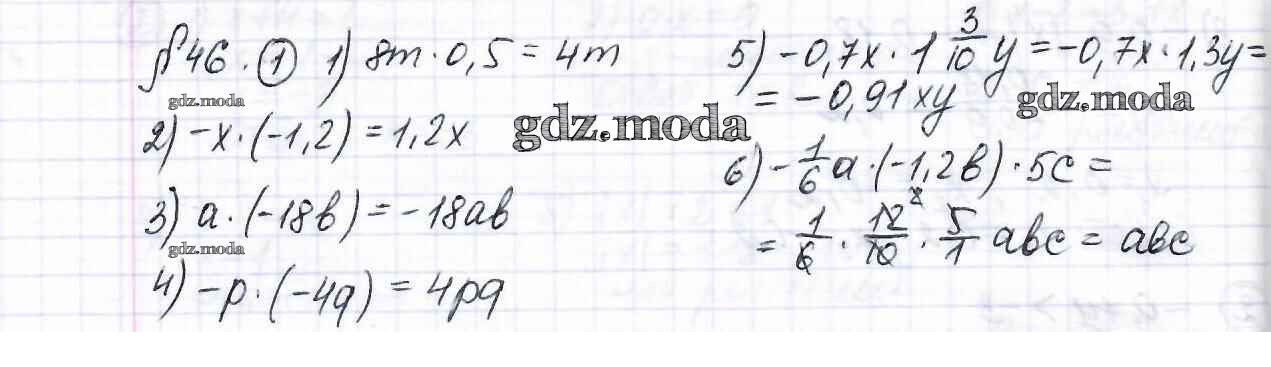 §46. ① 1) 8m · 0,5 = 4m
gdz.moda
2) -x · (-1,2) = 1,2x
3) a · (-18b) = -18ab
gdz.moda
4) -p · (-4q) = 4pq
gdz.moda
5) -0,7x · 1 3/10 y = -0,7x · 1,3y =
= -0,91xy
gdz.moda
6) -1/6 a · (-1,2b) · 5c =
= 1/6 · 12/10 · 5/1 abc = abc